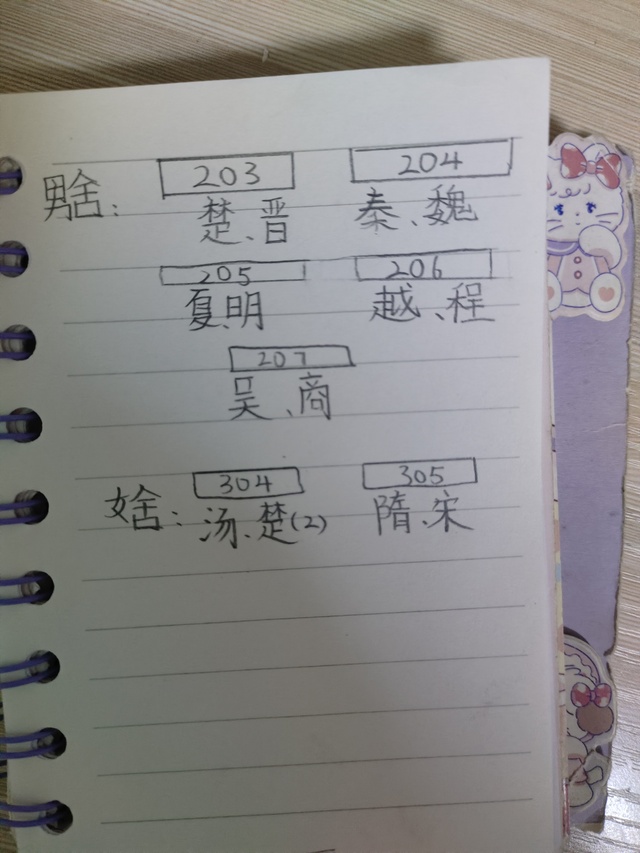 203 204
男舍: 楚、晋 秦、魏
205 206
夏、明 越、程
207
吴、商
304 305
女舍: 汤、楚(2) 隋、宋